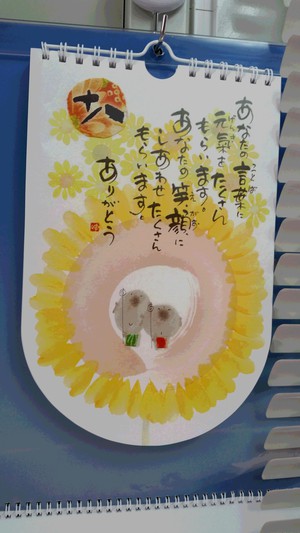 十八
あなたの言葉に
元気をたくさん
もらいます。
あなたの笑顔に
しあわせたくさん
もらいます。
ありがとう